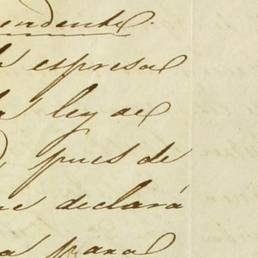 endente.
espresa
ley de
pues de
ue declará
a para